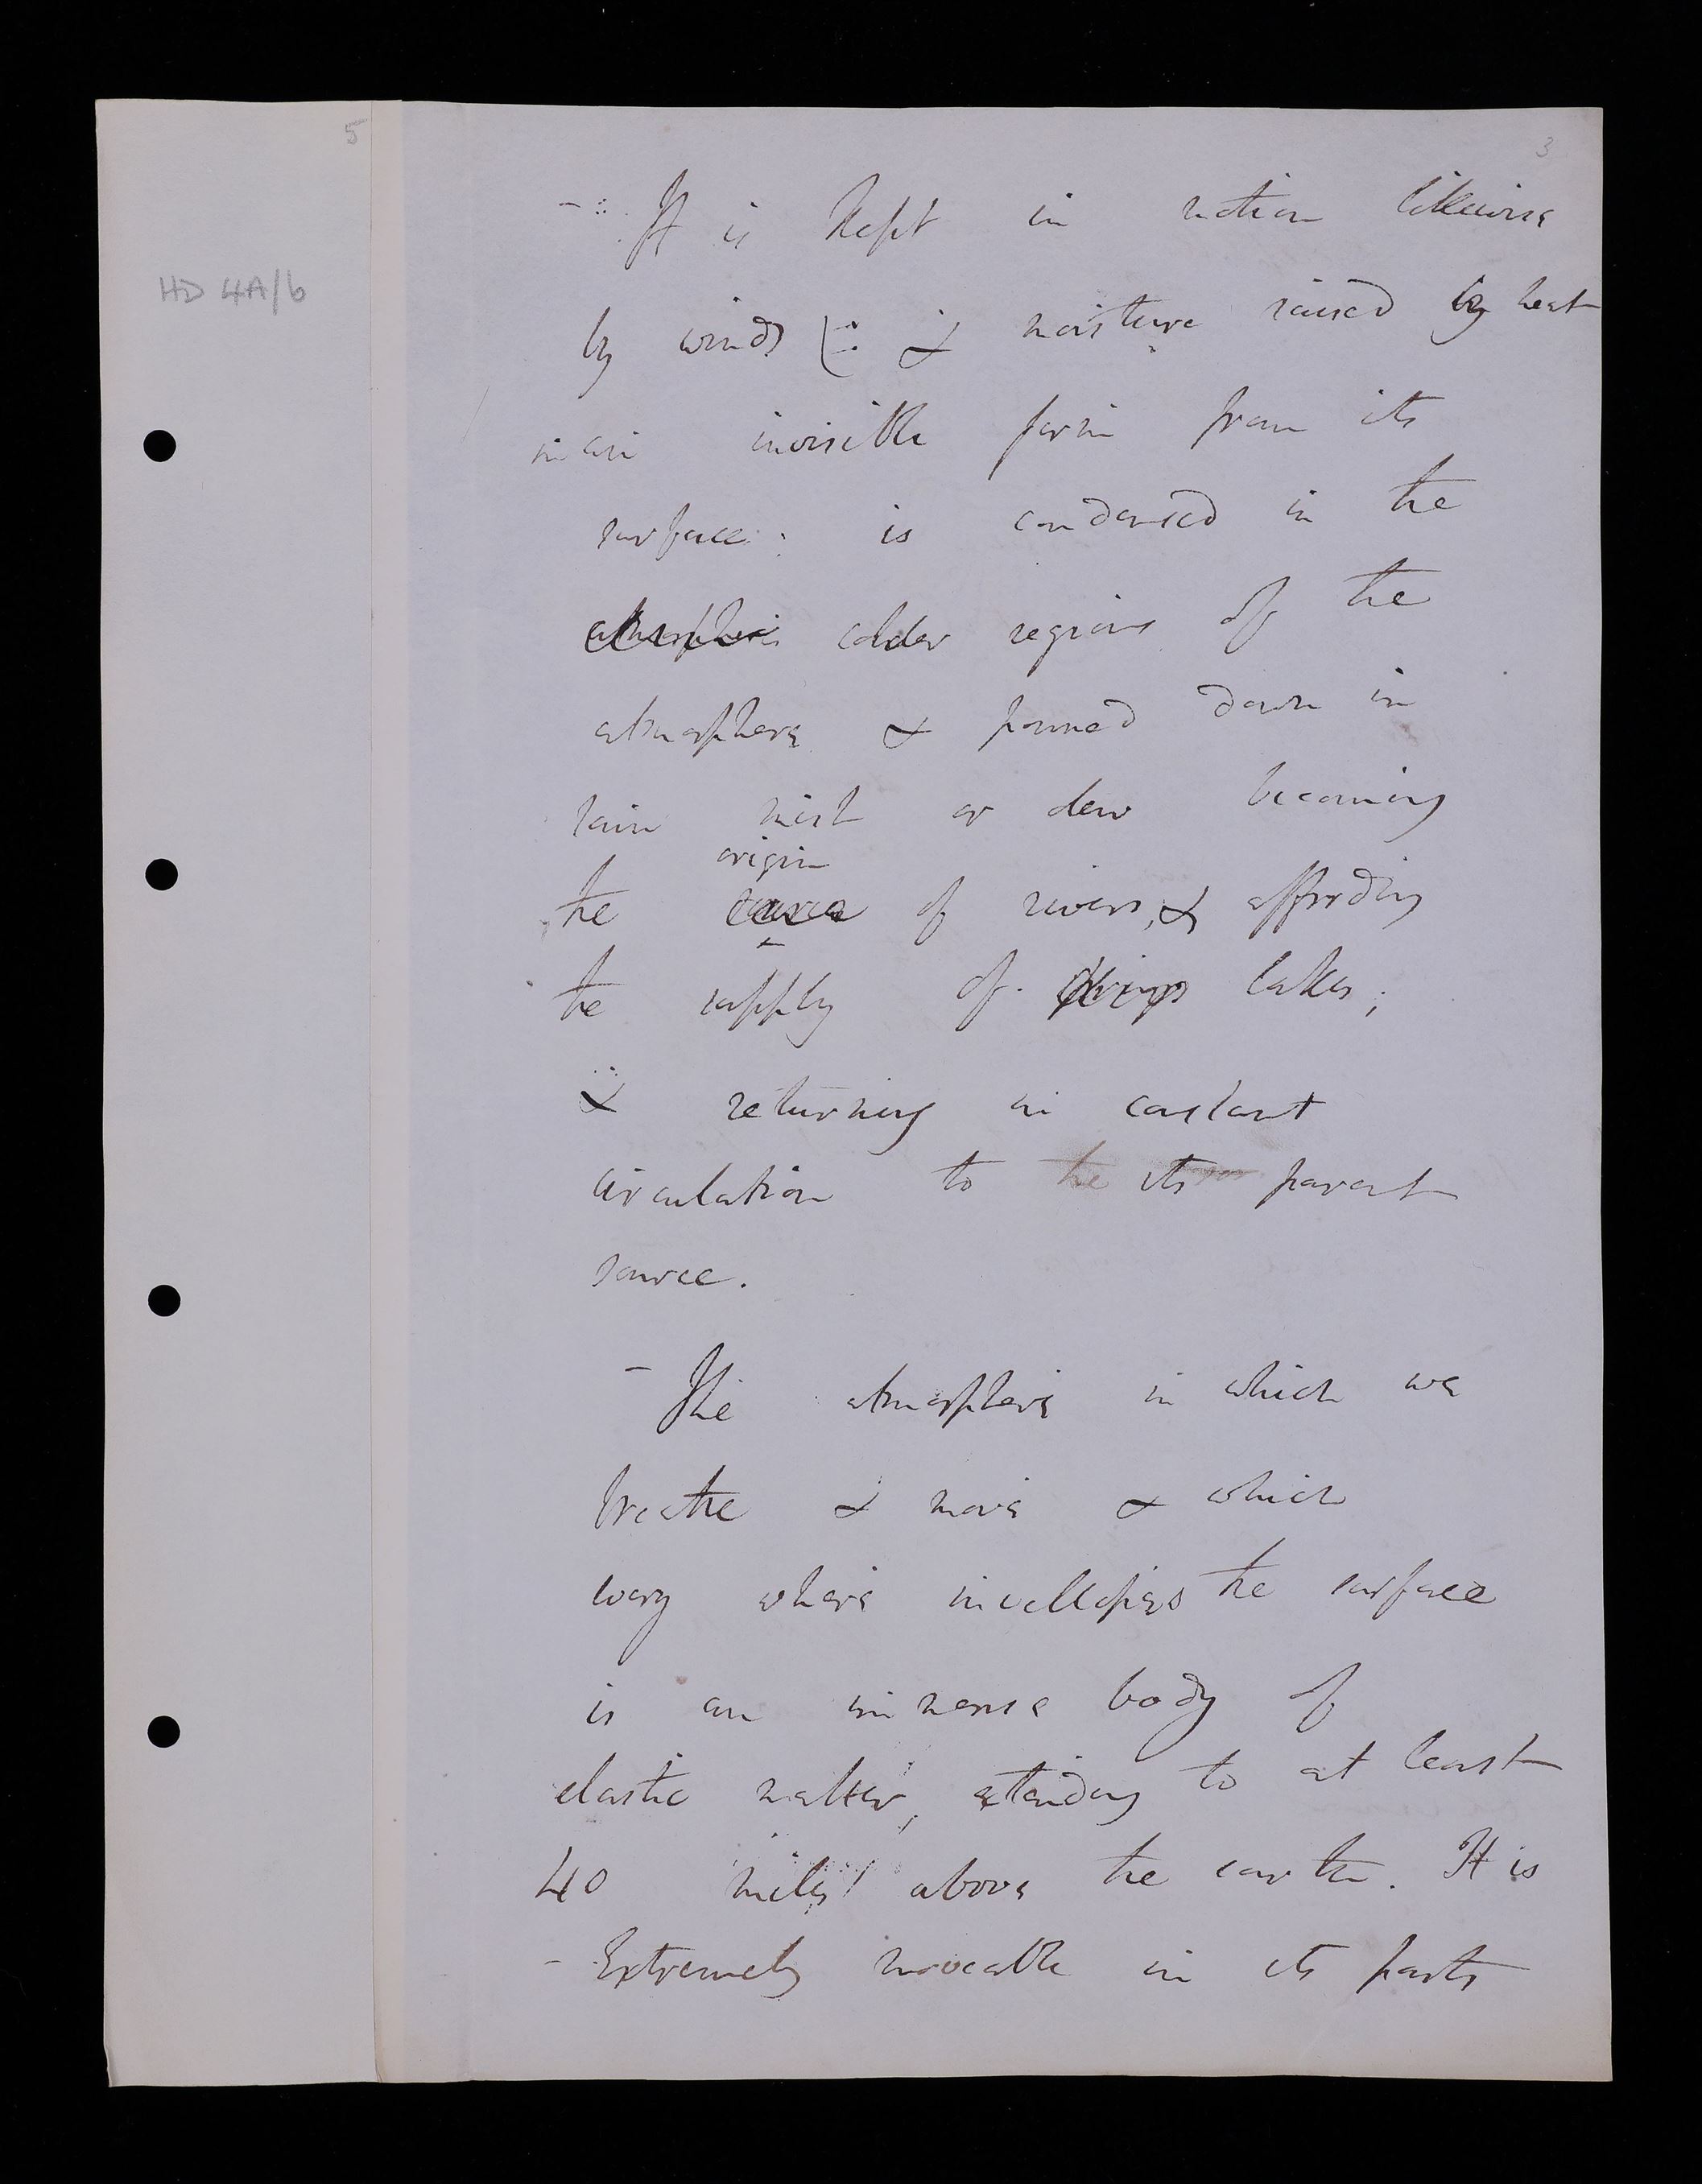 5
3
HD 4A/6
- It is kept in motion likewise
by winds & moisture raised by heat
in an invisible form from its
surface: is condensed in the
atmosphere colder regions of the
atmosphere & poured down in
rain mist or dew becoming
origin
the source of rivers, & affording
the supply of springs lakes;
& returning in constant
circulation to the its parent
source.
- The atmosphere in which we
breathe & move & which
every where invellopes the surface
is an immense body of
elastic matter, extending to at least
40 miles above the earth. It is
- Extremely moveable in its parts